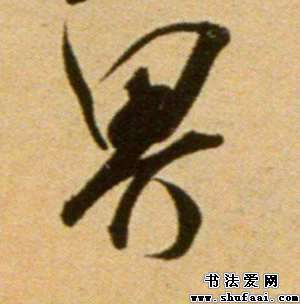 界
书法爱网
www.shufaai.com